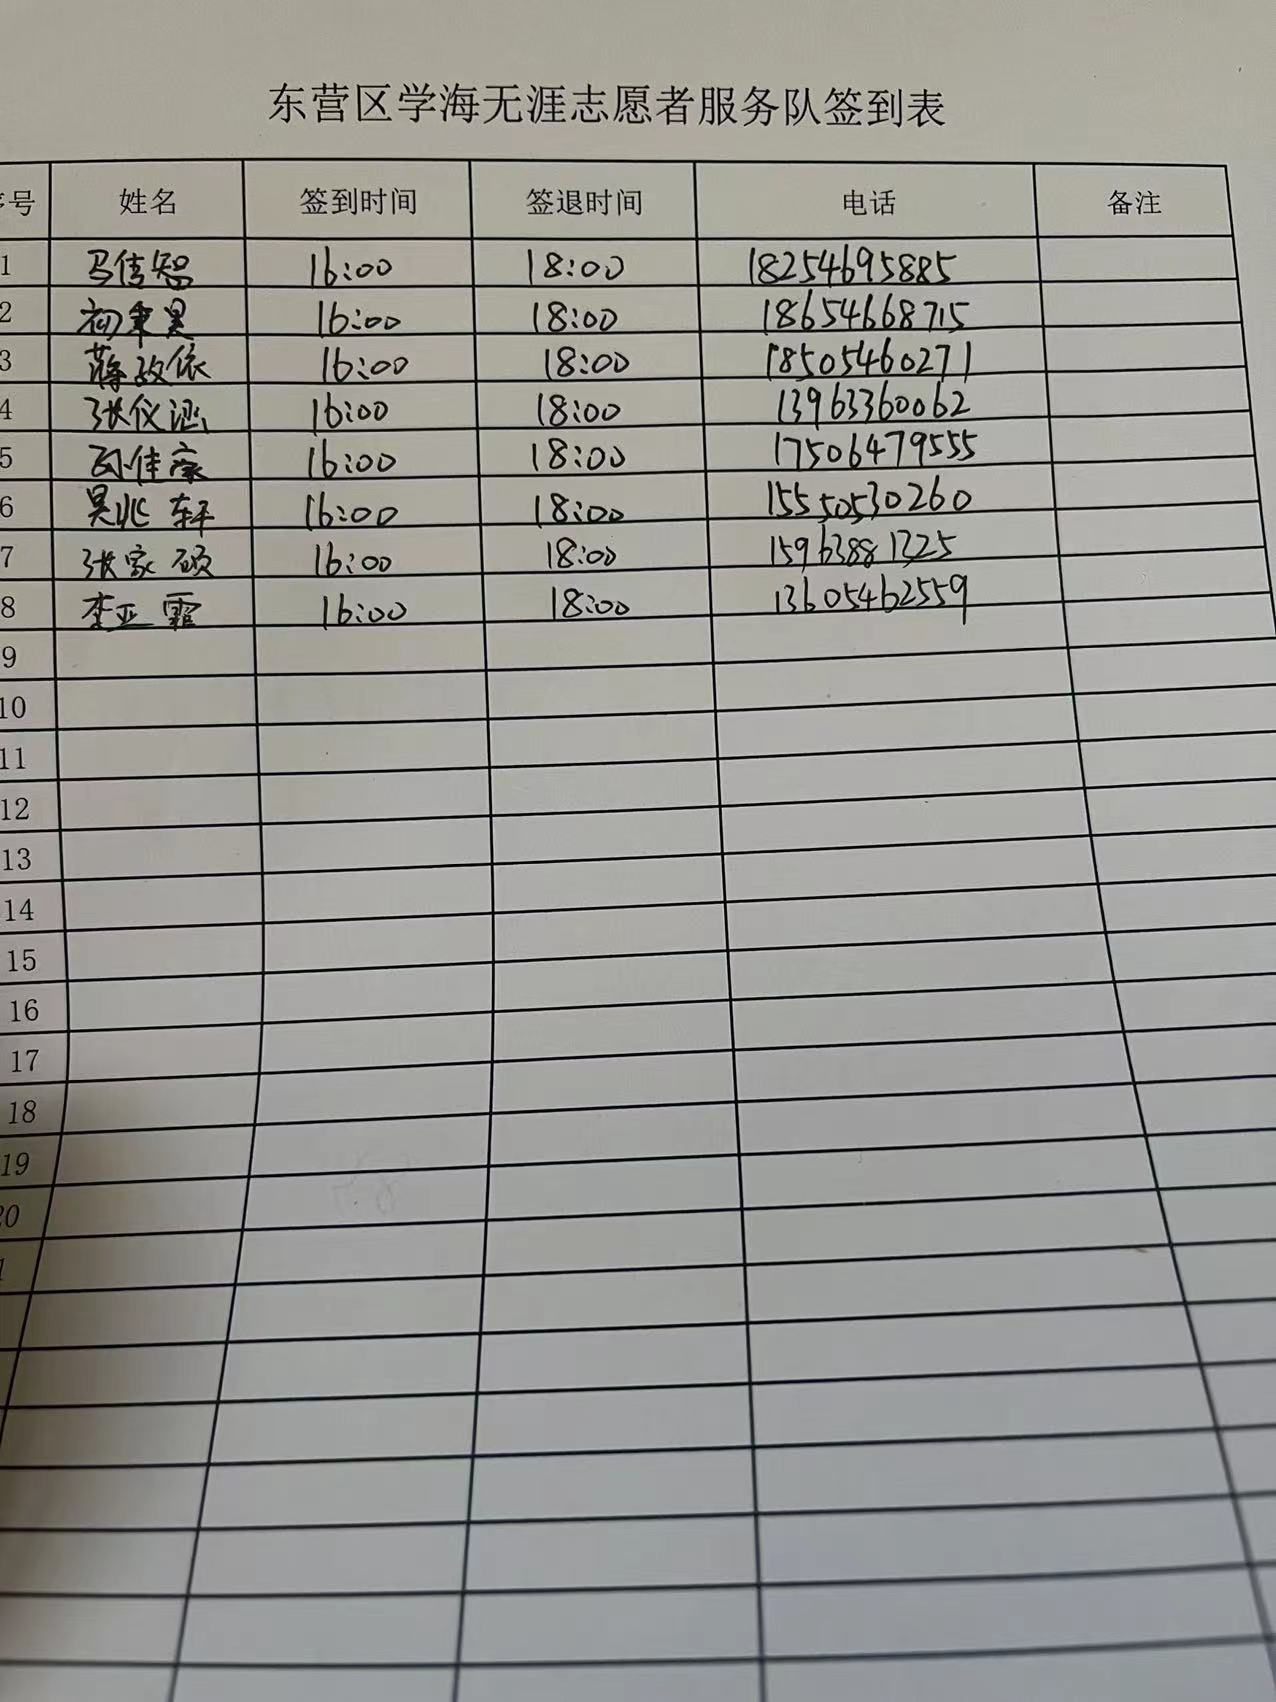 东营区学海无涯志愿者服务队签到表
号 姓名 签到时间 签退时间 电话 备注
1 马佳智 16:00 18:00 18254695885
2 初秉昊 16:00 18:00 18654668715
3 蒋孜依 16:00 18:00 18505460271
4 张仪涵 16:00 18:00 13963360062
5 孙佳豪 16:00 18:00 17506479555
6 吴兆轩 16:00 18:00 15550530260
7 张家硕 16:00 18:00 15963881325
8 李亚霏 16:00 18:00 13605462559
9
10
11
12
13
14
15
16
17
18
19
20
1